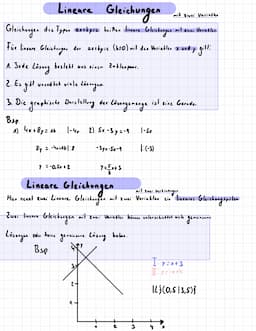 Lineare Gleichungen mit zwei Variablen
Gleichungen des Types ax+by=c heißen lineare Gleichungen mit zwei Variablen
Für lineare Gleichungen der ax+by=c (b≠0) mit den Variablen x und y gilt:
1. Jede Lösung besteht aus einem Zahlenpaar.
2. Es gibt unendlich viele Lösungen.
3. Die graphische Darstellung der Lösungsmenge ist eine Gerade.
Bsp
1) 4x+8y=16 |-4x 2) 5x-3y=-9 |-5x
8y = -4x+16 |:8 -3y=-5x-9 |:(-3)
y = -0,5x+2
Lineare Gleichungen mit zwei
Man nennt zwei lineare Gleichungen mit zwei Variablen ein lineares Gleichungssystem
Zwei lineare Gleichungen mit zwei Variablen können
Lösungen oder keine gemeinsame Lösung haben.
Bsp
y
4
3
I y=x+3
2
1
1 2 3 4 x